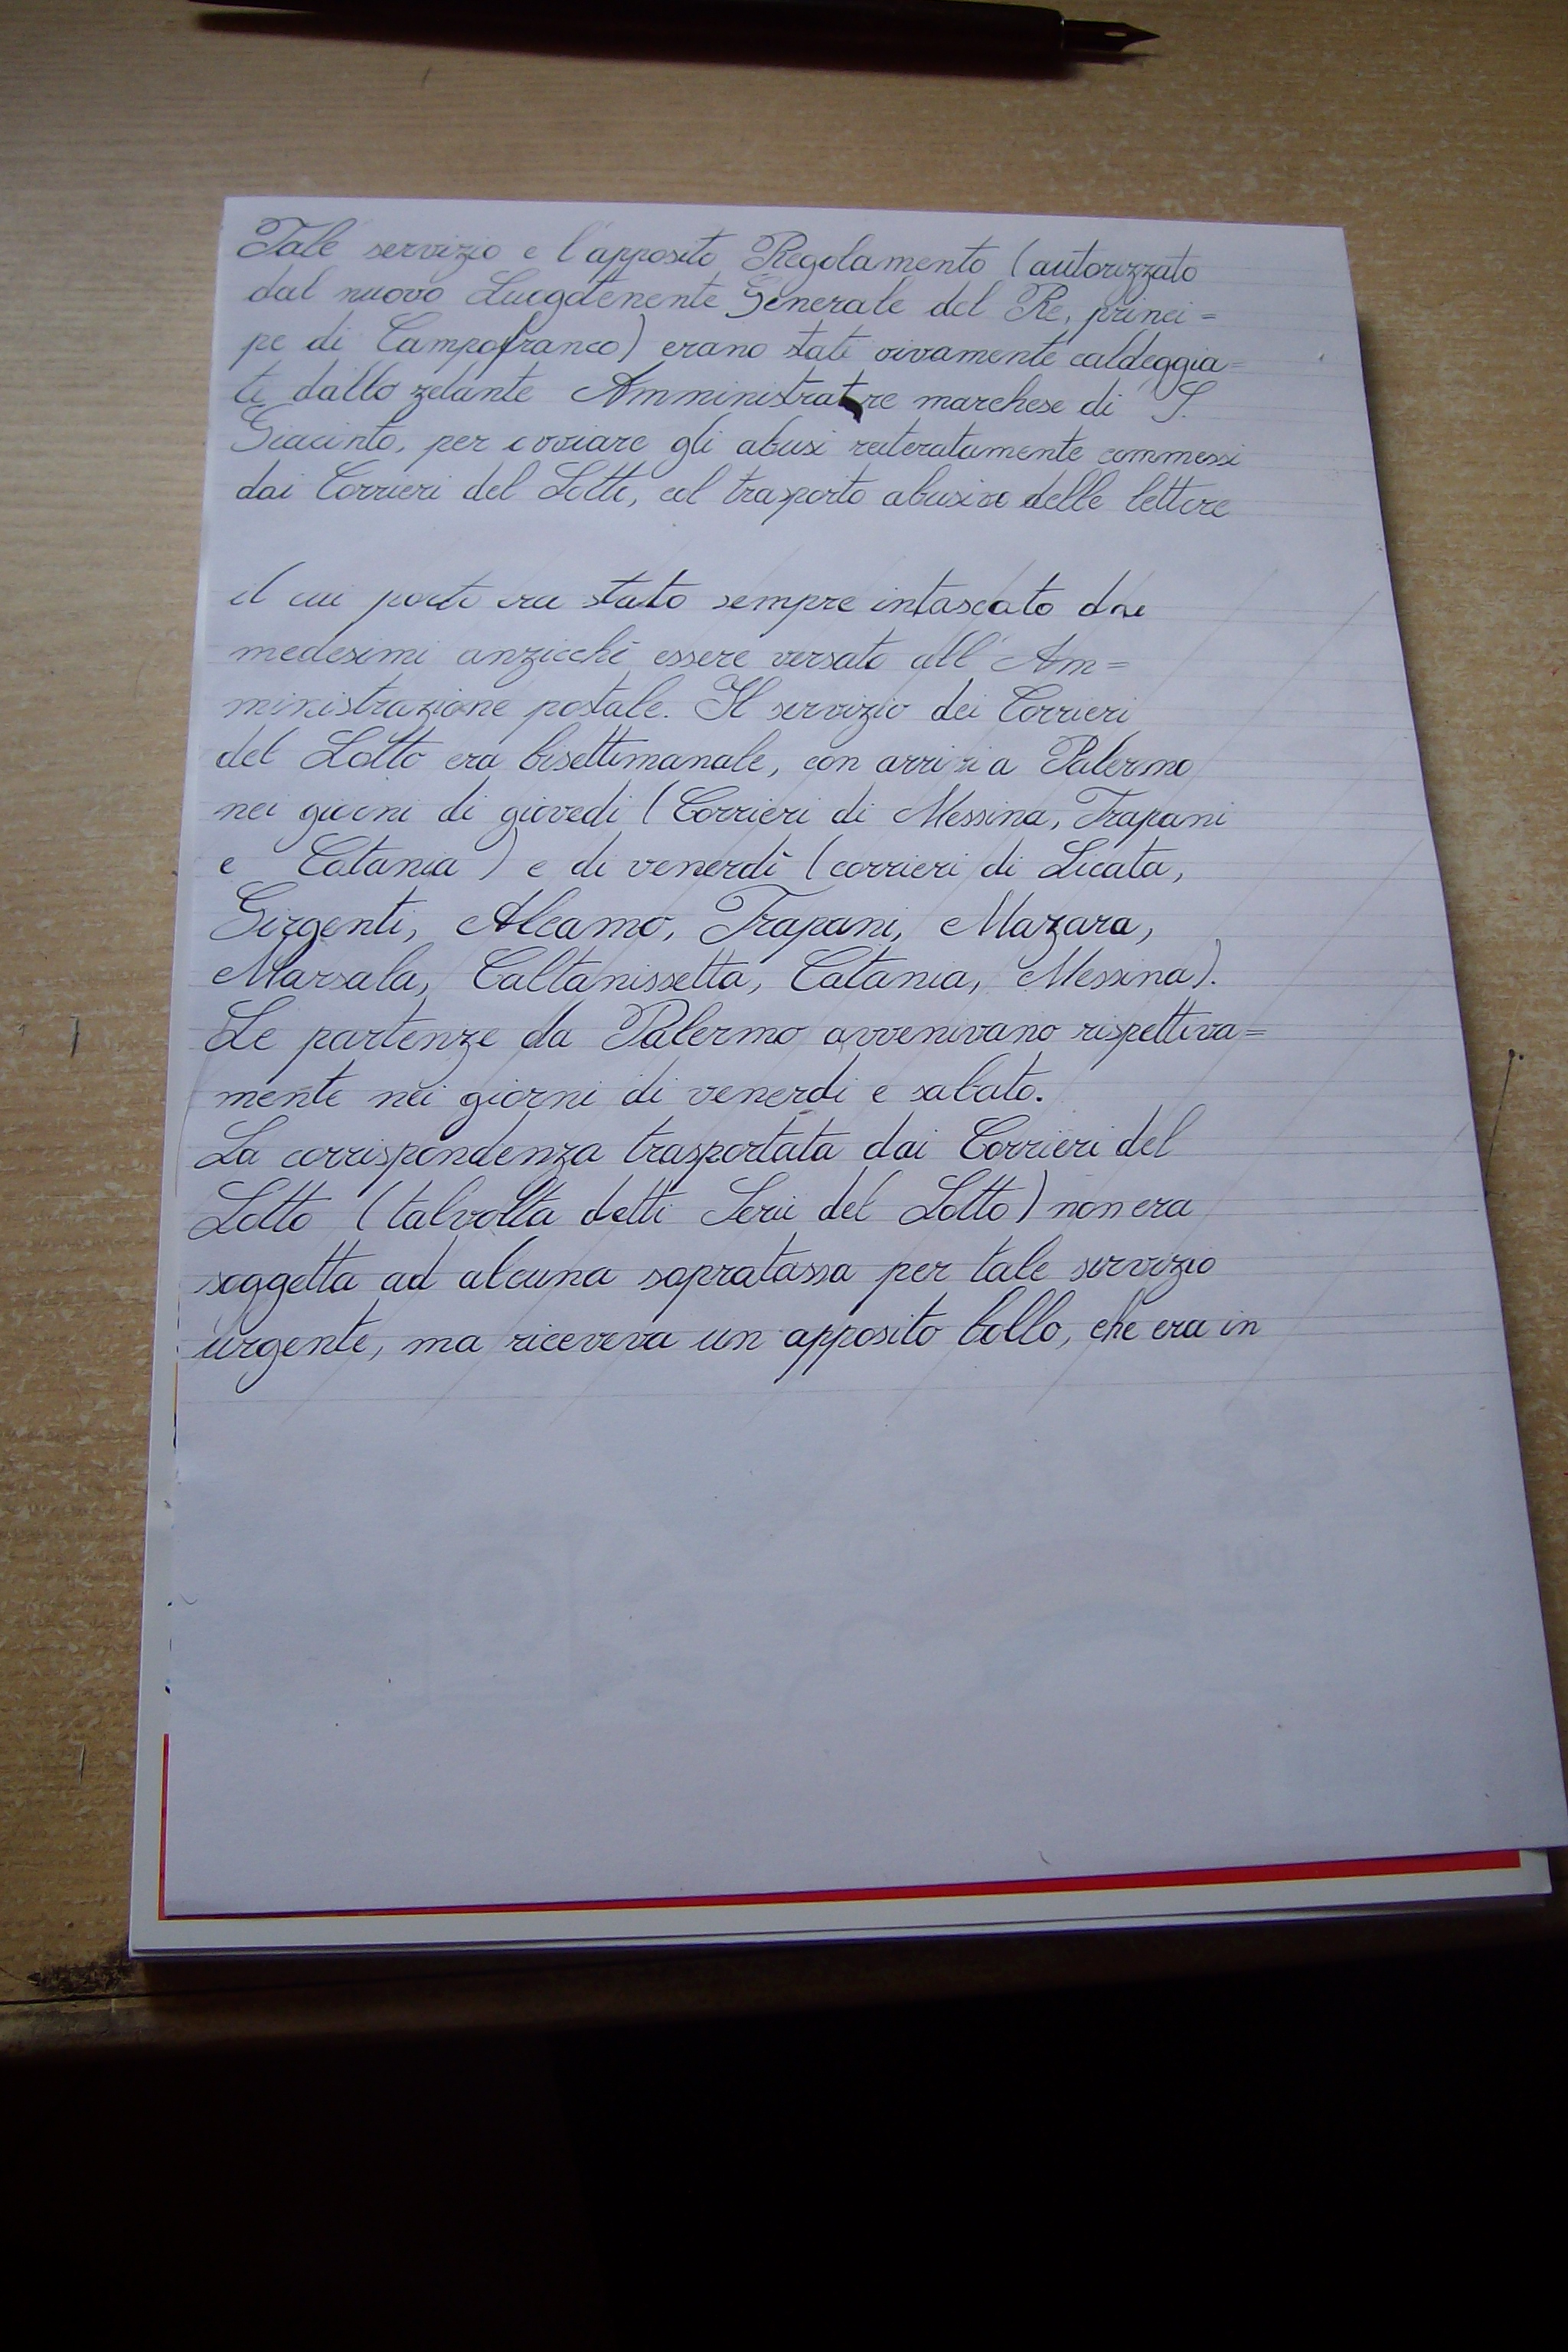 Tale servizio e l'apposito Regolamento (autorizzato
dal nuovo Luogotenente Generale del Re, princi=
pe di Campofranco) erano stati vivamente caldeggia=
ti dallo zelante Amministratore marchese di S.
Giacinto, per ovviare gli abusi reiteratamente commessi
dai Corrieri del Lotto, col trasporto abusivo delle lettere
il cui porto era stato sempre intascato dai
medesimi anzicchè essere versato all'Am=
ministrazione postale. Il servizio dei Corrieri
del Lotto era bisettimanale, con arrivi a Palermo
nei giorni di giovedi (Corrieri di Messina, Trapani
e Catania) e di venerdì (corrieri di Licata,
Girgenti, Alcamo, Trapani, Mazara,
Marsala, Caltanissetta, Catania, Messina).
Le partenze da Palermo avvenivano rispettiva=
mente nei giorni di venerdi e sabato.
La corrispondenza trasportata dai Corrieri del
Lotto (talvolta detti Serii del Lotto) non era
soggetta ad alcuna sopratassa per tale servizio
urgente, ma riceveva un apposito bollo, che era in